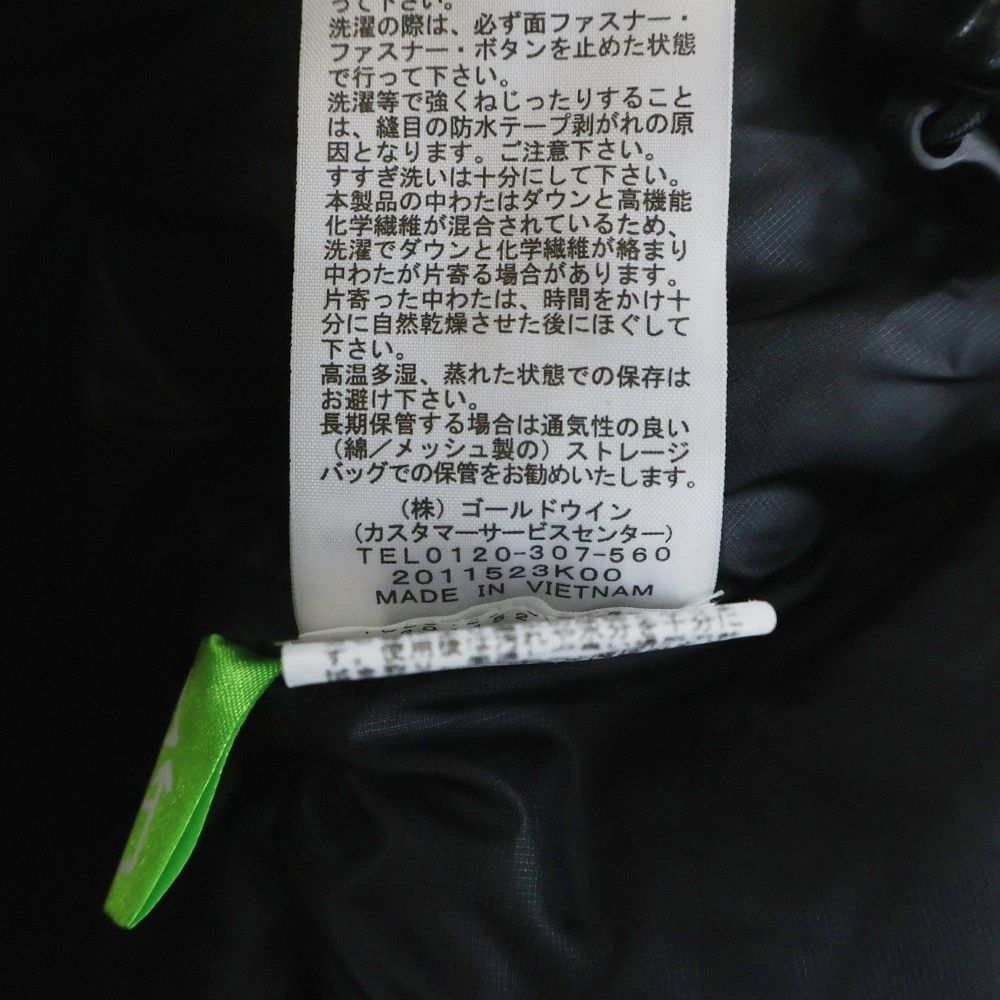 って下さい。
洗濯の際は、必ず面ファスナー・
ファスナー・ボタンを止めた状態
で行って下さい。
洗濯等で強くねじったりすること
は、縫目の防水テープ剥がれの原
因となります。ご注意下さい。
すすぎ洗いは十分にして下さい。
本製品の中わたはダウンと高機能
化学繊維が混合されているため、
洗濯でダウンと化学繊維が絡まり
中わたが片寄る場合があります。
片寄った中わたは、時間をかけ十
分に自然乾燥させた後にほぐして
下さい。
高温多湿、蒸れた状態での保存は
お避け下さい。
長期保管する場合は通気性の良い
（綿／メッシュ製の）ストレージ
バッグでの保管をお勧めいたします。
（株）ゴールドウイン
（カスタマーサービスセンター）
TEL0120-307-560
2011523K00
MADE IN VIETNAM
す。使用後は汚れや水分を十分に